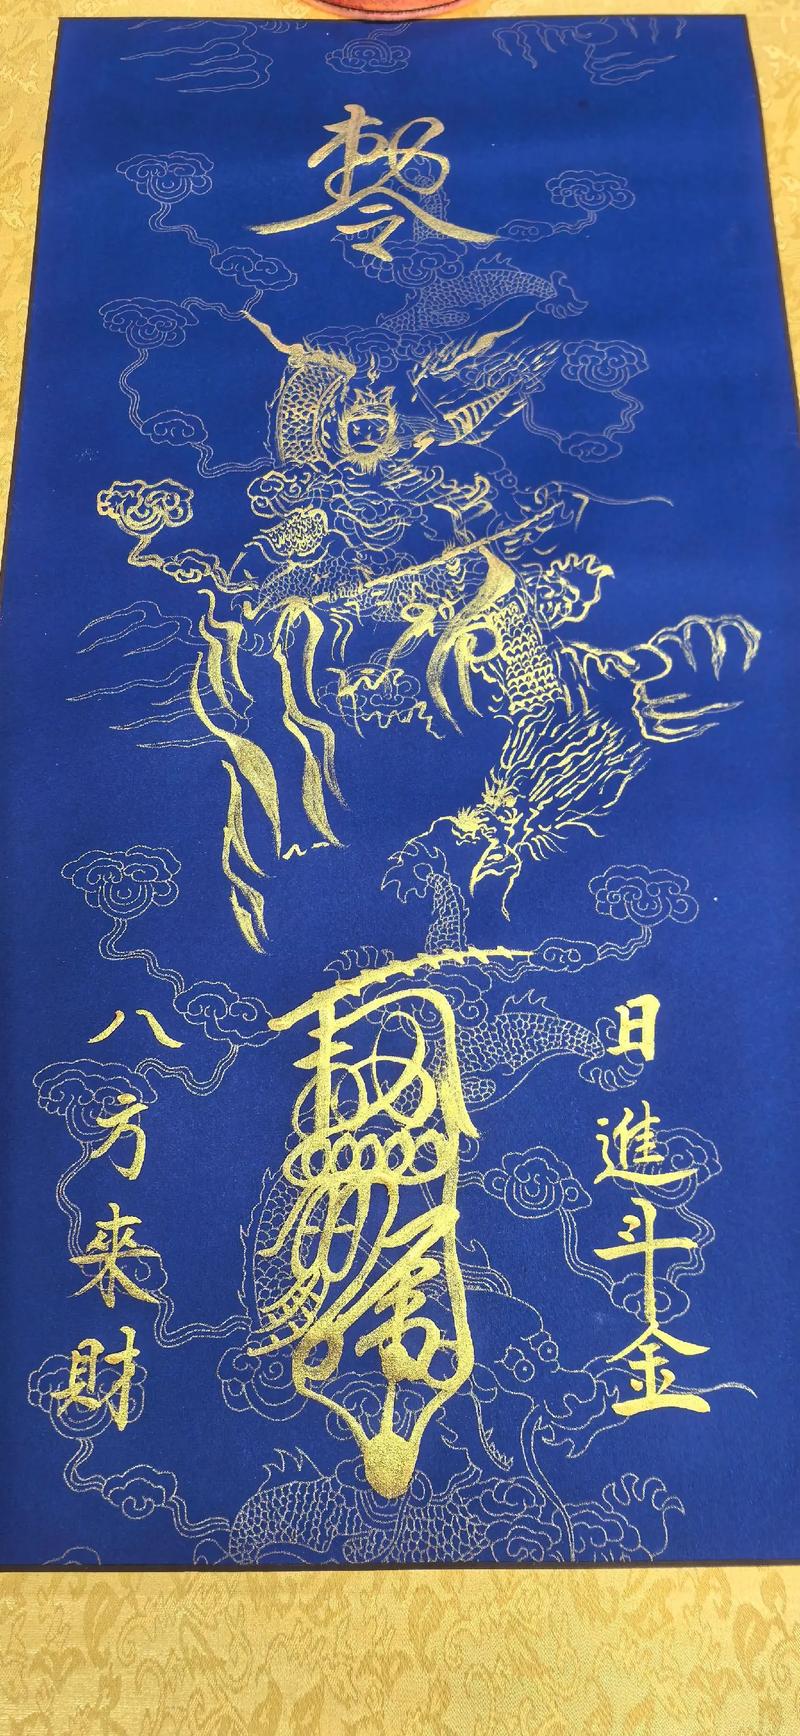 敕令
日進斗金
八方來財